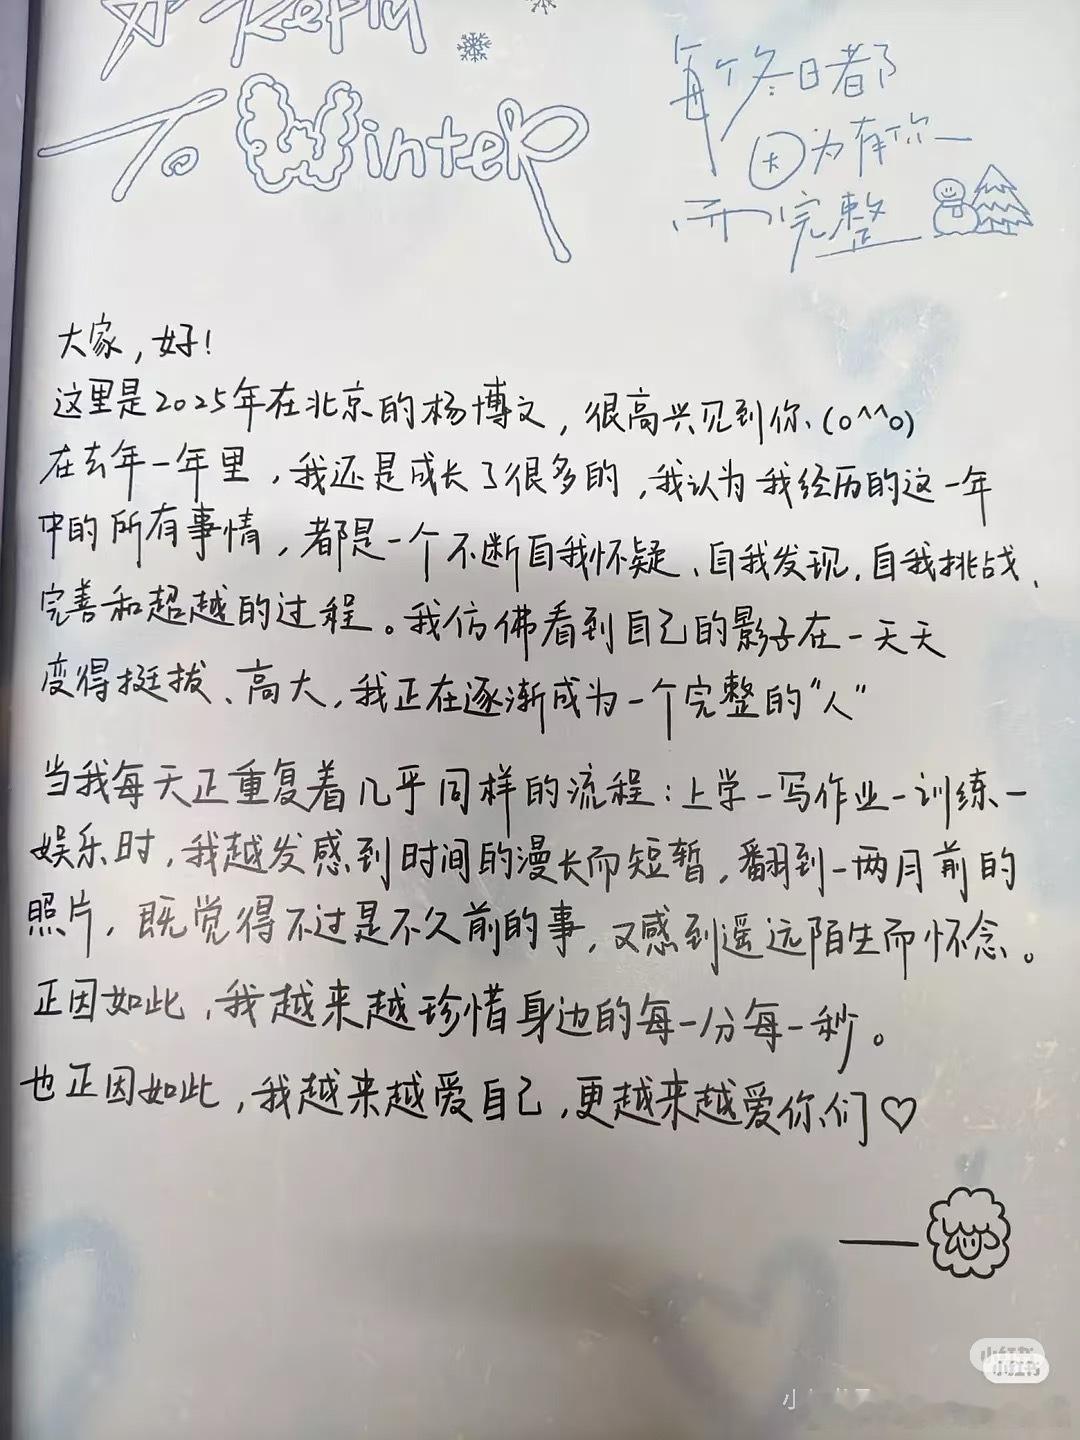 A Reply
To Winter
每个冬日都
因为有你
而完整
大家，好！
这里是2025年在北京的杨博文，很高兴见到你、(o^^o)
在去年一年里，我还是成长了很多的，我认为我经历的这一年
中的所有事情，都是一个不断自我怀疑、自我发现、自我挑战、
完善和超越的过程。我仿佛看到自己的影子在一天天
变得挺拔、高大，我正在逐渐成为一个完整的“人”
当我每天正重复着几乎同样的流程：上学－写作业－训练－
娱乐时，我越发感到时间的漫长而短暂，翻到一两月前的
照片，既觉得不过是不久前的事，又感到遥远陌生而怀念。
正因如此，我越来越珍惜身边的每一分每一秒。
也正因如此，我越来越爱自己，更越来越爱你们♡
小红书
小红书